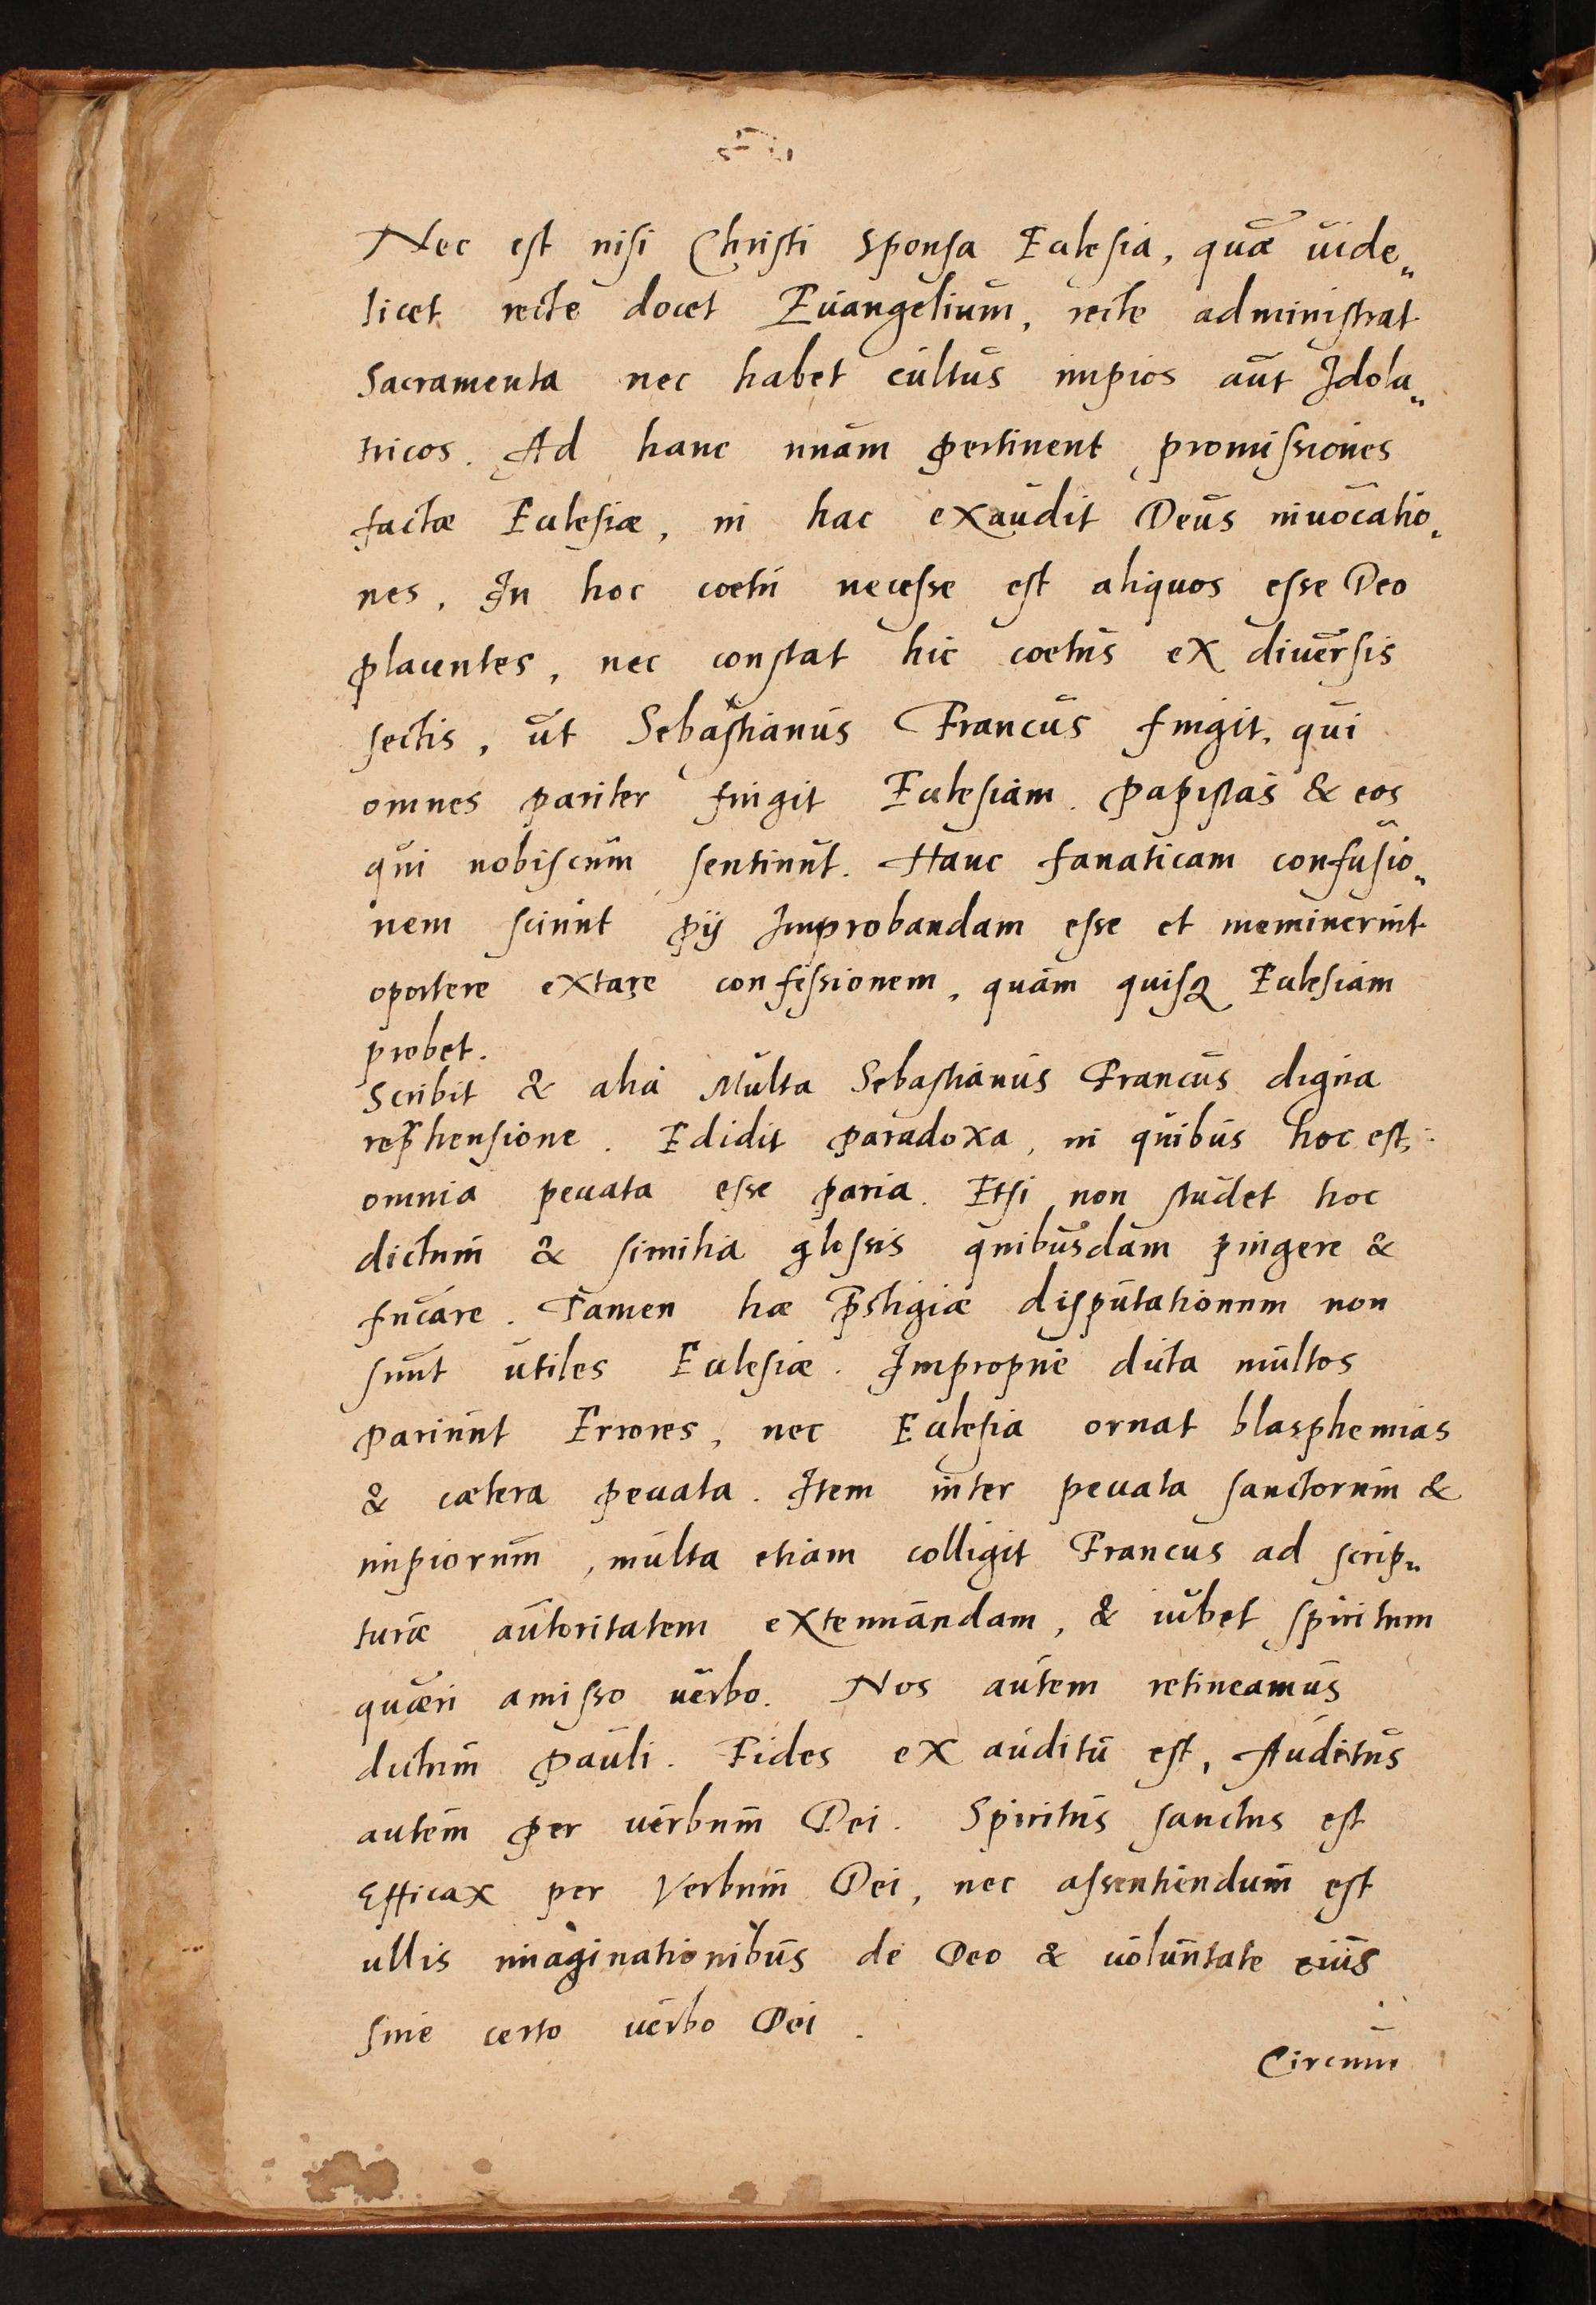 Nec est nisi Christi sponsa Ecclesia, quæ uide„
licet recte docet Euangelium, recte administrat
Sacramenta nec habet cultus impios aut Idola„
tricos. Ad hanc unam pertinent promissiones
factæ Ecclesiæ, in hac exaudit Deus inuocatio„
nes. In hoc coetu necesse est aliquos esse Deo
placentes, nec constat hic coetus ex diuersis
sectis, ut Sebastianus Francus fingit, qui
omnes pariter fingit Ecclesiam. papistas & eos
qui nobiscum sentiunt. Hanc fanaticam confusio„
nem sciunt pij Improbandam esse et meminerint
oportere extare confessionem, quam quisq Ecclesiam
probet.
Scribit & alia Multa Sebastianus Francus digna
rep̄hensione. Edidit paradoxa, in quibus hoc est:
omnia peccata esse paria. Etsi non studet hoc
dictum & similia glossis quibusdam pingere &
fucare. Tamen hæ p̄stigiæ disputationum non
sunt utiles Ecclesiæ. Improprie dicta multos
pariunt Errores, nec Ecclesia ornat blasphemias
& cætera peccata. Item inter peccata sanctorum &
impiorum, multa etiam colligit Francus ad scrip„
turæ autoritatem extenuandam, & iubet spiritum
quæri amisso uerbo. Nos autem retineamus
dictum pauli. Fides ex auditu est, Auditus
autem per uerbum Dei. Spiritus sanctus est
Efficax per Verbum Dei, nec assentiendum est
ullis imaginationibus de Deo & uoluntate eius
sine certo uerbo Dei.
Circum